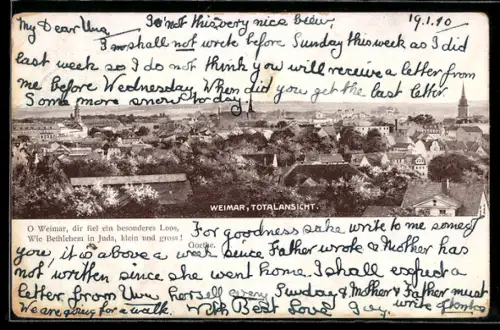 My Dear Una
Is not this very nice view.
19.1.10
I shall not wrote before Sunday this week as I did
last week so I do not think you will receive a letter from
me before Wednesday. When did you get the last letter.
Some more snow to day.
WEIMAR, TOTALANSICHT.
O Weimar, dir fiel ein besonderes Loos,
Wie Bethlehem in Juda, klein und gross!
Goethe.
For goodness sake write to me some of
you, it is above a week since Father wrote & Mother has
not written since she went home. I shall expect a
letter from Una herself every Sunday & Mother & Father must
write often too
We are going for a walk. With Best Love Guy.